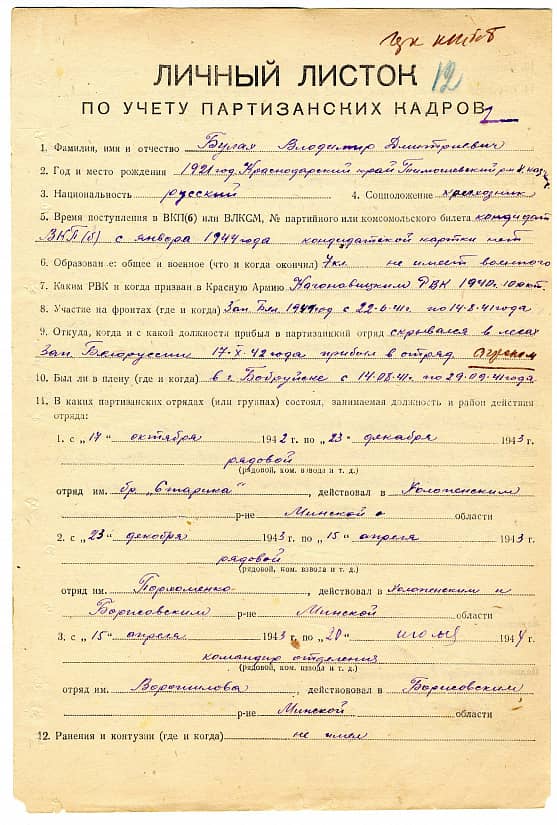 12
ЛИЧНЫЙ ЛИСТОК
ПО УЧЕТУ ПАРТИЗАНСКИХ КАДРОВ
1. Фамилия, имя и отчество Булах Владимир Дмитриевич
2. Год и место рождения 1921 год, Краснодарский край Тимошевский
3. Национальность русский 4. Соцположение
5. Время поступления в ВКП(б) или ВЛКСМ, № партийного или комсомольского билета кандидат
ВКП(б) с января 1944 года кандидатской картки нет
6. Образован е: общее и военное (что и когда окончил) 7 кл. не имеет военного
7. Каким РВК и когда призван в Красную Армию РВК 1940.
8. Участие на фронтах (где и когда) Зап. Бел. с 22-6-41. по 14-8-41 года
9. Откуда, когда и с какой должности прибыл в партизанкий отряд скрывался в лесах
Зап. Белоруссии 17-X-42 года прибыл в отряд
10. Был ли в плену (где и когда) в г. Бобруйске с 14-08-41. по 29-09-41 года
11. В каких партизанских отрядах (или группах) состоял, занимаемая должность и район действия
отряда:
1. с „17" октября 1942 г. по „23" декабря 1943 г.
рядовой
(рядовой, ком. взвода и т. д.)
отряд им. бр. „Старика" , действовал в
р-не Минской области
2. с „23" декабря 1943 г. по „15" апреля 1943 г.
рядовой
(рядовой, ком. взвода и т. д.)
отряд им. , действовал в и
Борисовским р-не Минской области
3. с „15" апреля 1943 г. по „20" июля 1944 г.
командир отделения
(рядовой, ком. взвода и т. д.)
отряд им. Ворошилова , действовал в Борисовским
р-не Минской области
12. Ранения и контузии (где и когда) не имел